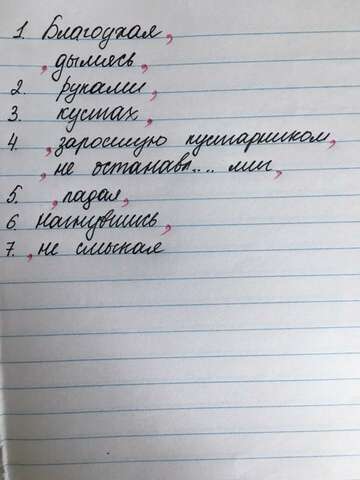 1. Благоухая,
, дымясь,
2. руками,
3. кустах,
4. , заросшую кустарником,
, не останавл.... миг,
5. , падая,
6. нагнувшись,
7. , не смыкая